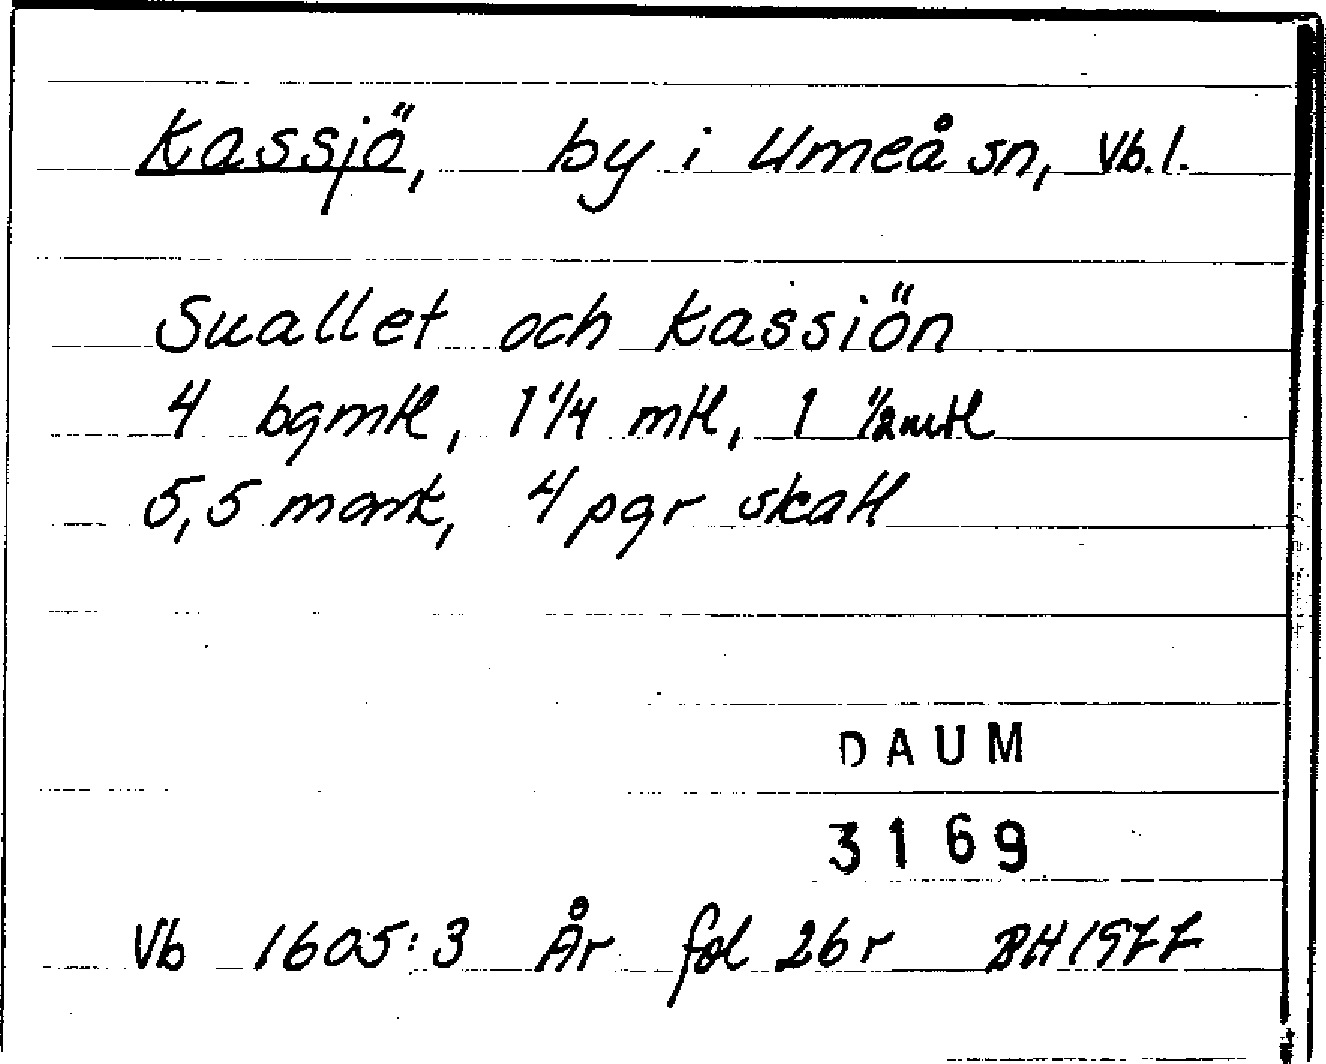 Kassjö, by i Umeå sn, Vb.l.
Suallet och Kassiön
4 bgmtl, 1 1/4 mtl, 1 1/2 mtl
5,5 mark, 4 pgr skatt
DAUM
3169
Vb 1605:3 År fol 26r BH 1977